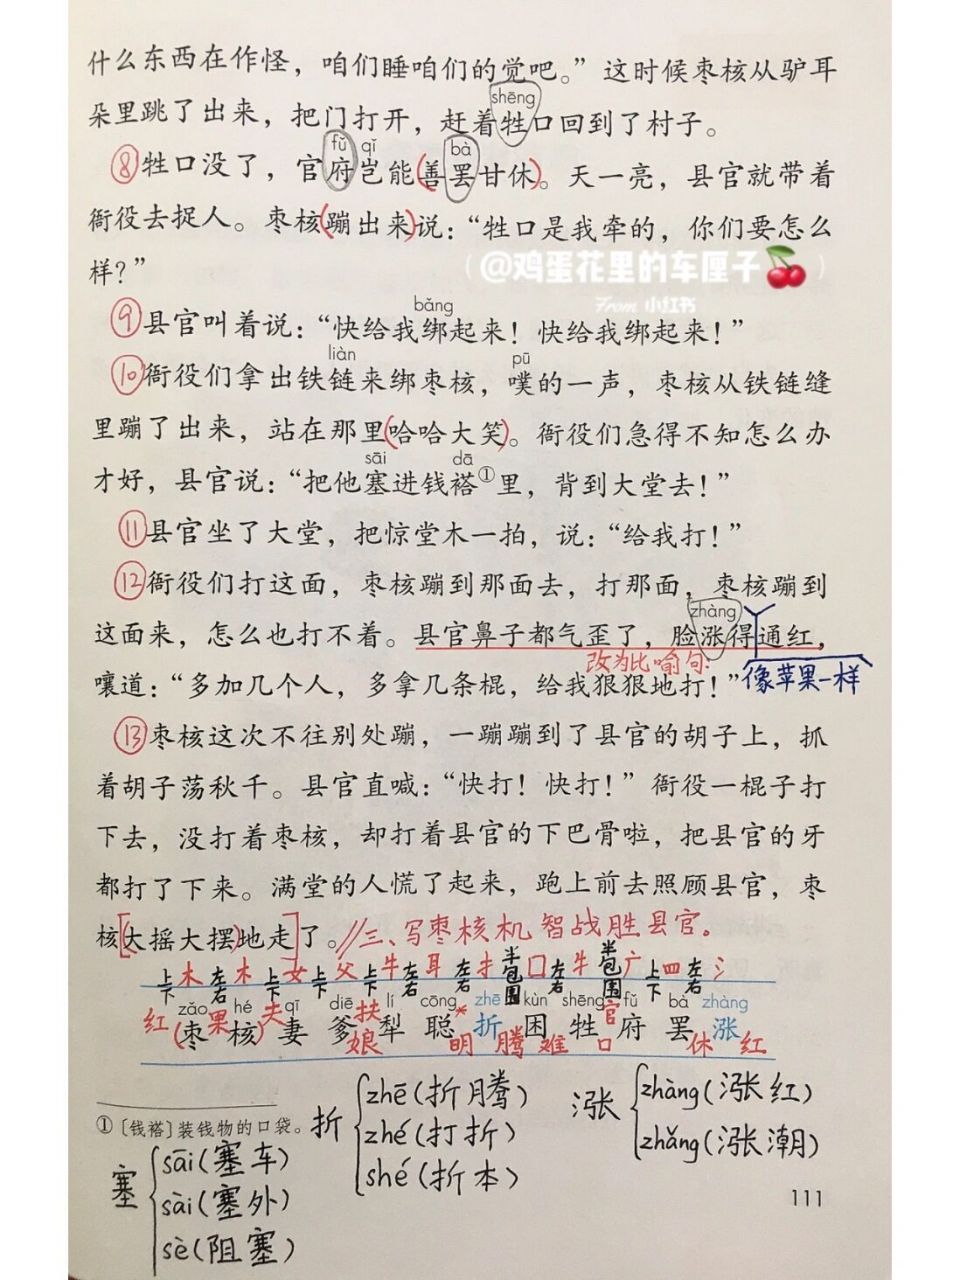 什么东西在作怪，咱们睡咱们的觉吧。”这时候枣核从驴耳
shēng
朵里跳了出来，把门打开，赶着牲口回到了村子。
fǔ qǐ bà
⑧牲口没了，官府岂能(善罢甘休)。天一亮，县官就带着
衙役去捉人。枣核(蹦出来)说：“牲口是我牵的，你们要怎么
样？”
(@鸡蛋花里的车厘子)
From 小红书
bǎng
⑨县官叫着说：“快给我绑起来！快给我绑起来！”
liàn pū
⑩衙役们拿出铁链来绑枣核，噗的一声，枣核从铁链缝
里蹦了出来，站在那里(哈哈大笑)。衙役们急得不知怎么办
sāi dā
才好，县官说：“把他塞进钱褡①里，背到大堂去！”
⑪县官坐了大堂，把惊堂木一拍，说：“给我打！”
⑫衙役们打这面，枣核蹦到那面去，打那面，枣核蹦到
zhàng
这面来，怎么也打不着。县官鼻子都气歪了，脸涨得通红，
改为比喻句:
像苹果一样
嚷道：“多加几个人，多拿几条棍，给我狠狠地打！”
⑬枣核这次不往别处蹦，一蹦蹦到了县官的胡子上，抓
着胡子荡秋千。县官直喊：“快打！快打！”衙役一棍子打
下去，没打着枣核，却打着县官的下巴骨啦，把县官的牙
都打了下来。满堂的人慌了起来，跑上前去照顾县官，枣
核[(大摇大摆)地走]了。//三、写枣核机智战胜县官。
上下 木 左右 木 上下 女 上下 父 上下 牛 左右 耳 左右 扌 半包围 口 左右 牛 半包围 广 上下 罒 左右 氵
zǎo hé qī diē lí cōng zhē kùn shēng fǔ bà zhàng
红(枣果核)夫妻 爹 扶犁 聪* 折 困 牲 官府 罢 涨
娘 明 腾 难 口 休 红
①〔钱褡〕装钱物的口袋。
折 { zhē(折腾)
zhé(打折)
shé(折本)
涨 { zhàng(涨红)
zhǎng(涨潮)
塞 { sāi(塞车)
sài(塞外)
sè(阻塞)
111